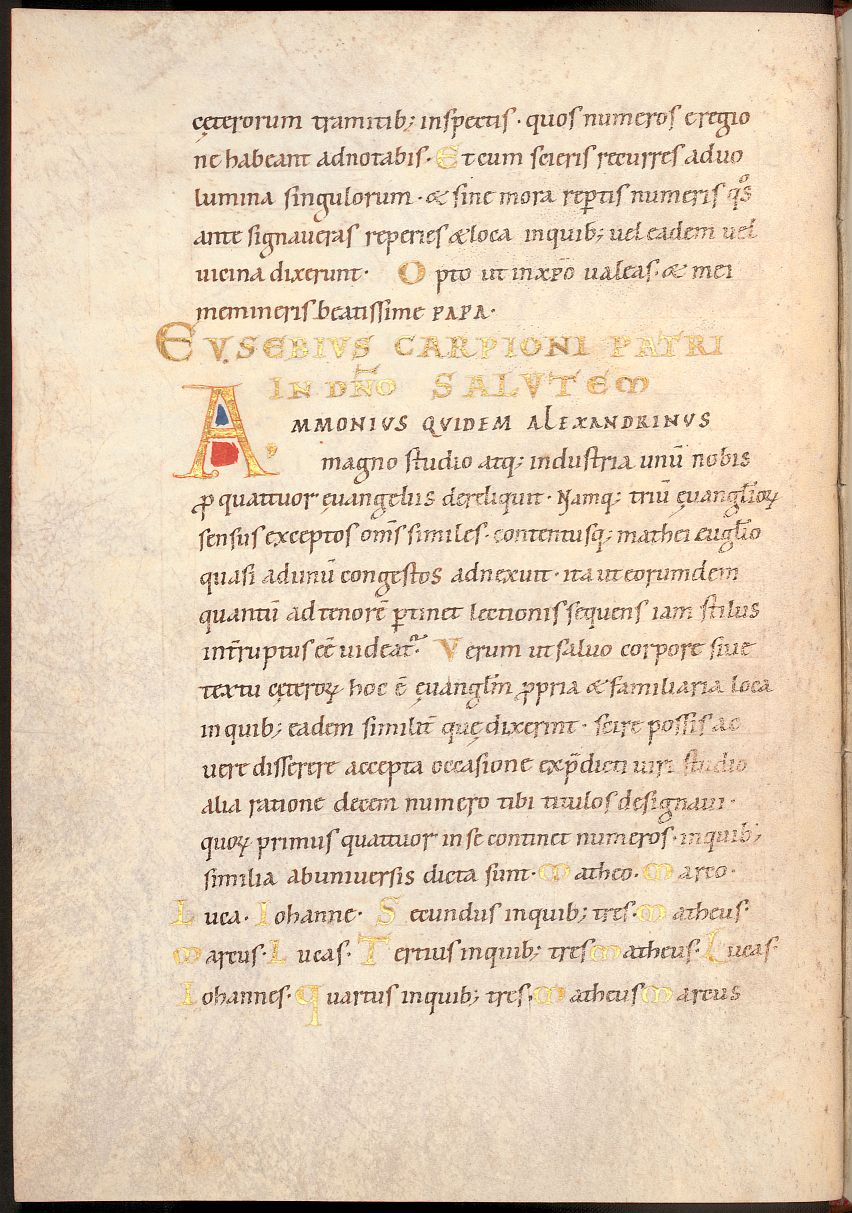 cęterorum tramitib; inspectis · quos numeros eregio
ne habeant adnotabis · Et cum scieris recurres aduo
lumina singulorum · & sine mora reptis numeris qos
ante signaueras reperies & loca inquib; uel eadem uel
uicina dixerunt · Opto ut inxpō ualeas · & mei
memineris beatissime PAPA ·
EVSEBIVS CARPIONI PATRI
IN DNO SALVTEM
AMMONIUS QVIDEM ALEXANDRINUS
magno studio atq; industria unū nobis
ꝓ quattuor euangeliis dereliquit · Namq; triū ęuangl̄ioꝝ
sensus exceptos om̄s similes · contentusq; mathei eugl̄io
quasi adunū congestos adnexuit · ita ut eorumdem
quantū ad tenorē ꝑtinet lectionis sequens iam stilus
int̄ruptus eē uideat ·᷑ Verum ut saluo corpore siue
textu cęteroꝝ hoc ē ęuangl̄m ꝓpria & familiaria loca
in quib; eadem similit̄ quę dixerint · scire possis ac
uere disserere accepta occasione exp̄dicti uiri studio
alia ratione decem numero tibi titulos designaui ·
quoꝝ primus quattuor in se continet numeros · inquib;
similia abuniuersis dicta sunt · Matheo · Marco ·
Luca · Iohanne · Secundus inquib; tres · Matheus ·
Marcus · Lucas · Tertius inquib; tres Matheus · Lucas ·
Iohannes · Quartus inquib; tres · Matheus Marcus